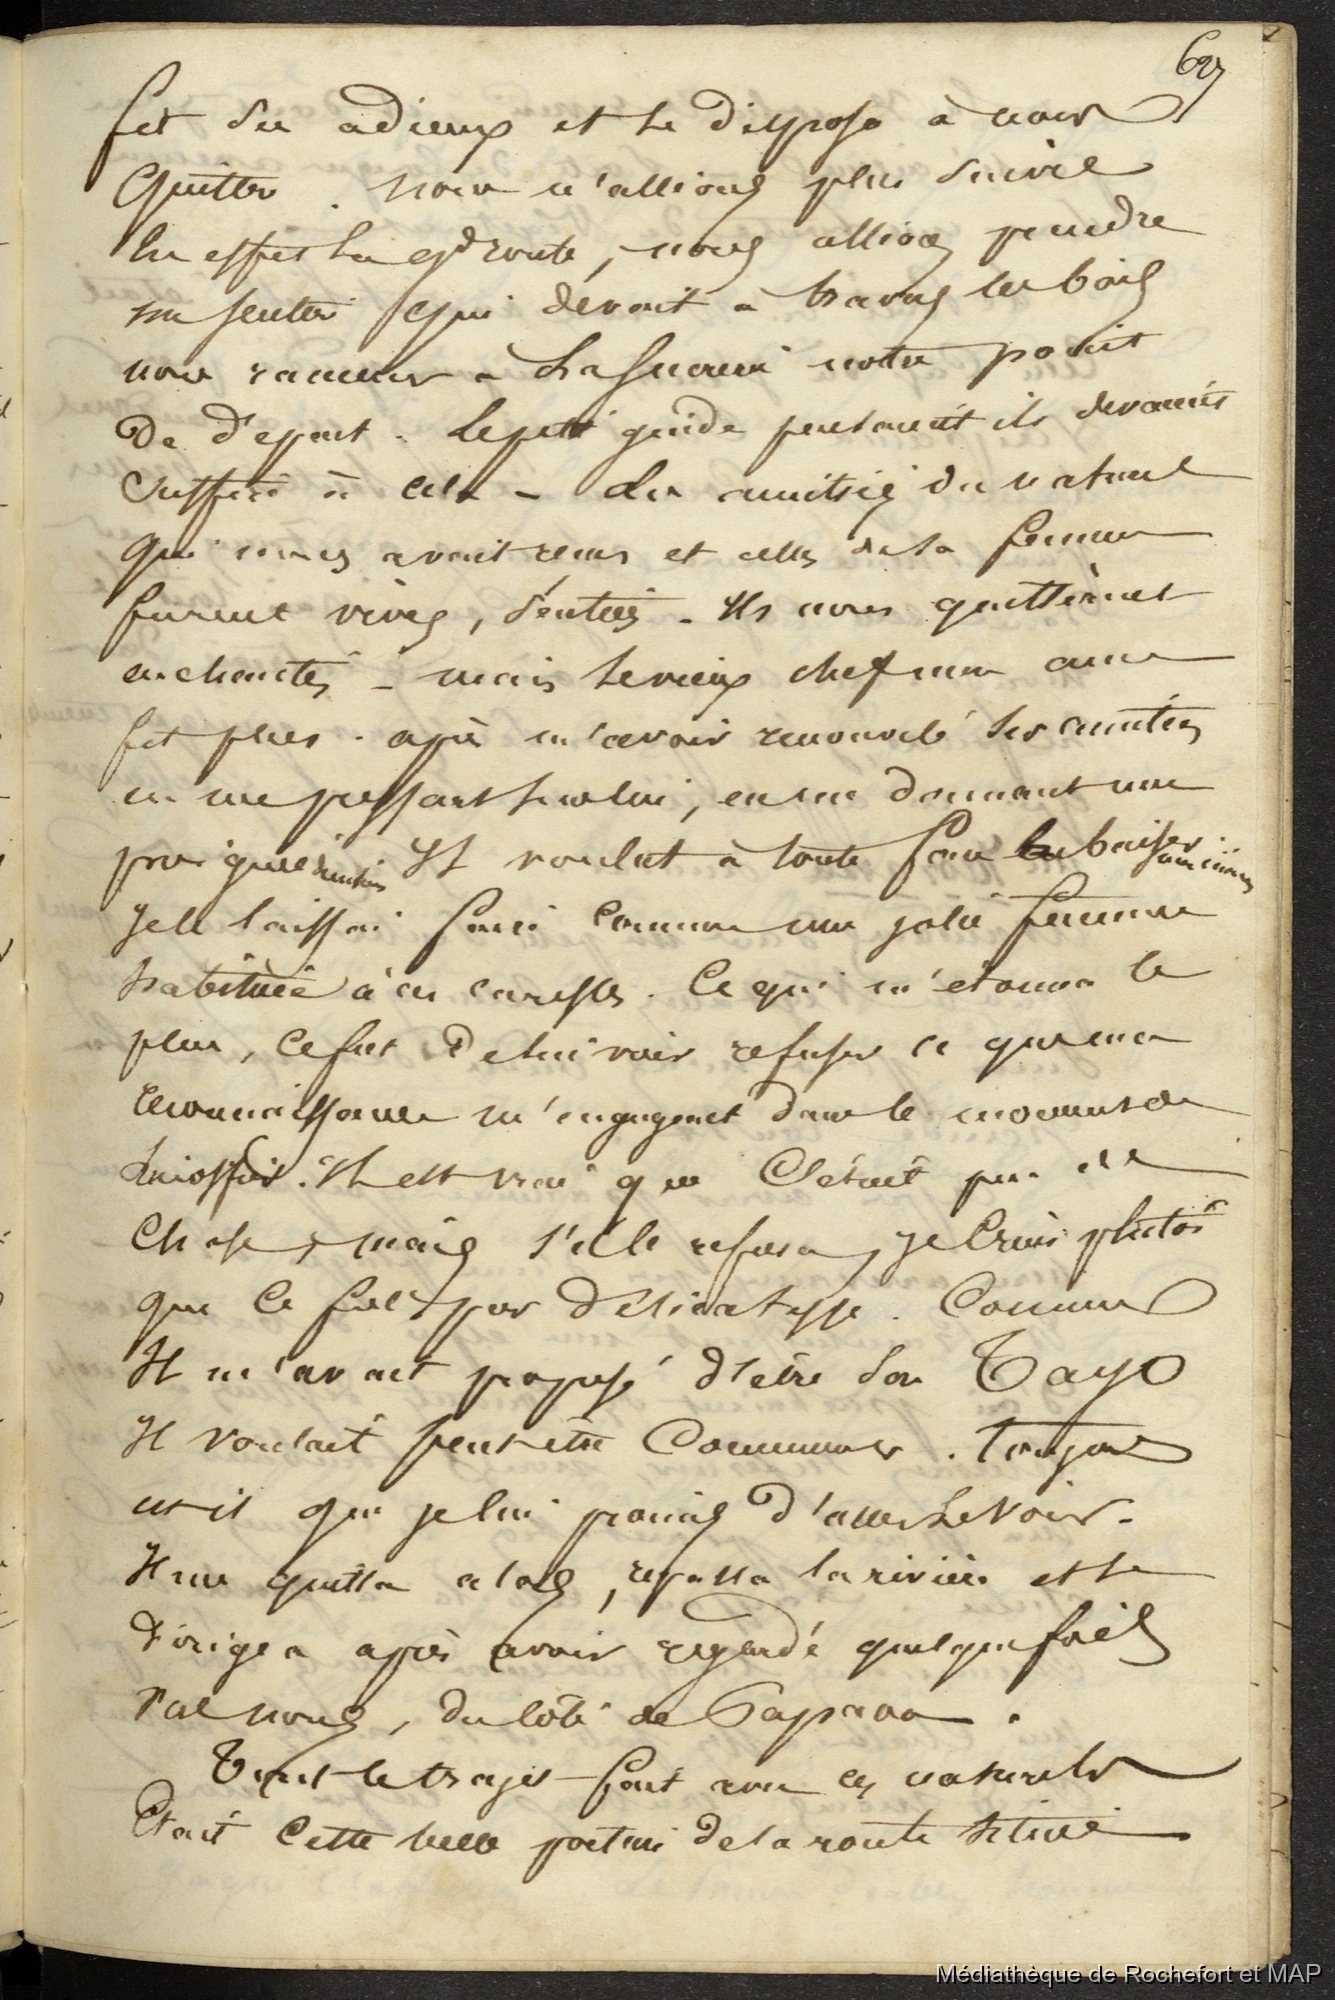 69
fit ses adieux et se disposa à nous
quitter. nous n'allions plus suivre
en effet la gde route, nous allions prendre
un sentier qui devait à travers les bois
nous ramener à notre point
De départ. Le petit guide pensaient ils devait
suffire à cela - Les amitiés du naturel
qui nous avait reçus et celles de sa femme
furent vives, senties. Ils nous quittèrent
enchantés - mais le vieux chef mon ami
fit plus. après m'avoir renouvelé ses amitiés
en me pressant sur lui, en me donnant une
poignée de main Il voulut à toute force me baiser
Je le laissai faire comme une jolie femme
habituée à ces caresses. Ce qui m'étonna le
plus, ce fut de lui voir refuser ce que ma
reconnaissance m'engageait dans le moment de
lui offrir. Il est vrai que C'était peu de
Chose, mais s'il le refusa, je Crois plutôt
que Ce fut par délicatesse. Comme
Il m'avait proposé d'être son Tayo
Il voulait peut-être Commencer. Toujours
est-il que je lui promis d'aller le voir.
Il me quitta alors, repassa la rivière et se
dirigea après avoir regardé quelques fois
vers nous, du côté de Papara.
Tout le trajet fait avec ces naturels
Etait cette belle portion de la route située
Médiathèque de Rochefort et MAP